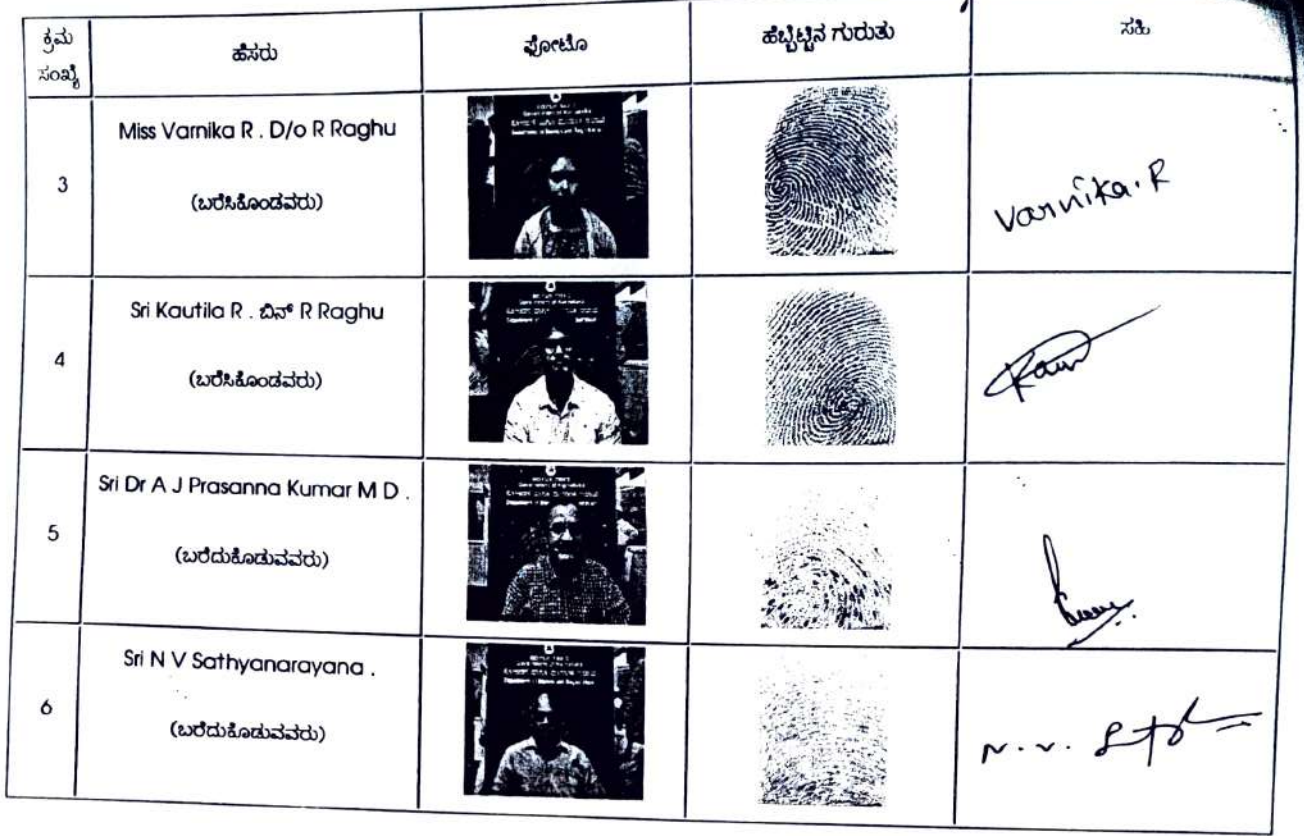 ಕ್ರಮ ಸಂಖ್ಯೆ ಹೆಸರು ಫೋಟೊ ಹೆಬ್ಬೆಟ್ಟಿನ ಗುರುತು ಸಹಿ
3 Miss Varnika R . D/o R Raghu
(ಬರೆಸಿಕೊಂಡವರು)
Varnika.R
4 Sri Kautila R . ಬಿನ್ R Raghu
(ಬರೆಸಿಕೊಂಡವರು)
5 Sri Dr A J Prasanna Kumar M D .
(ಬರೆದುಕೊಡುವವರು)
6 Sri N V Sathyanarayana .
(ಬರೆದುಕೊಡುವವರು)
N. V.